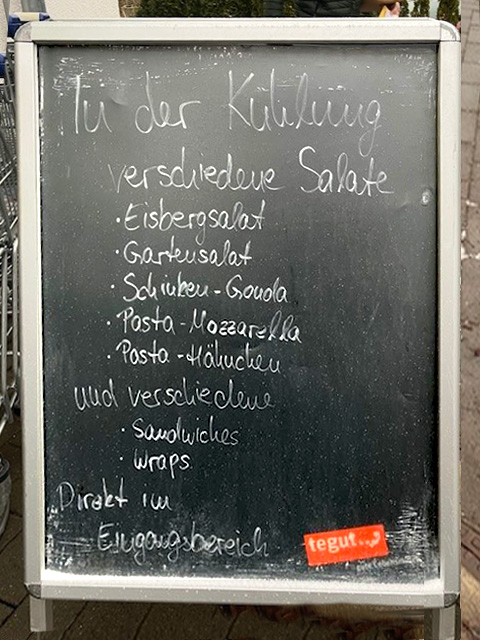 In der Kühlung
verschiedene Salate
· Eisbergsalat
· Gartensalat
· Schinken-Gouda
· Pasta-Mozzarella
· Pasta-Hähnchen
und verschiedene
· Sandwiches
· Wraps
Direkt im
Eingangsbereich
tegut...